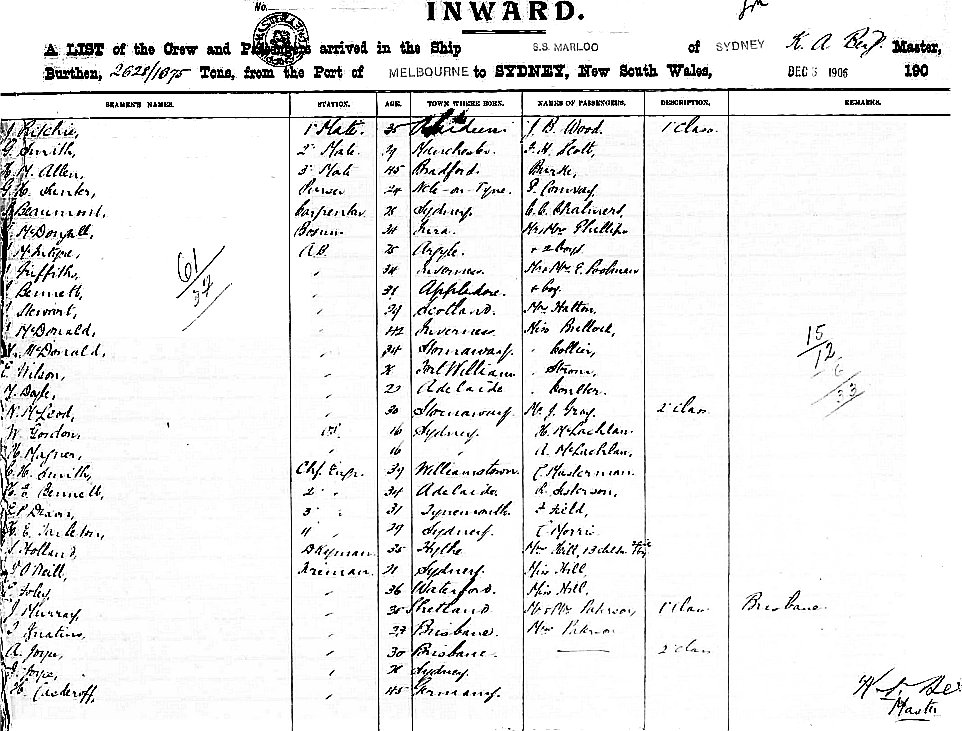 No.
INWARD.
A LIST of the Crew and Passengers arrived in the Ship S.S. MARLOO of SYDNEY K. A. Master,
Burthen, 2628/1675 Tons, from the Port of MELBOURNE to SYDNEY, New South Wales, DEC 5 1906 190
SEAMEN'S NAMES. STATION. AGE. TOWN WHERE BORN. NAMES OF PASSENGERS. DESCRIPTION. REMARKS.
Ritchie, 1st Mate. 35 Aberdeen J. B. Wood. 1 Class.
G. Smith, 2nd Mate. 29 Manchester. Scott,
H. M. Allen, 3rd Mate 45 Bradford. Burke,
G. H. Purser 24 Ncle-on-Tyne. Conway
Beaumont, Carpenter Sydney. C. C. Chalmers,
McDougall, Bosun 34 Mr & Mrs Phillips
McIntyre, A.B. Argyle. & 2 boys
Griffiths, " 34 Inverness. Mr & Mrs E. Poolman
61
32
Bennett, " 31 Appledore. & boy
Stewart, " 29 Scotland. Mrs Hatton.
McDonald, " 42 Inverness Miss Bullock,
15
12
6
33
McDonald, " 34 Stornaway. " Collier,
E. Wilson, " Fort William " Strom,
Doyle, " Adelaide " Coulter.
N. McLeod, " 30 Stornaway. Mr J. Gray. 2 Class
W. Gordon, 16 Sydney. H. McLachlan.
H. Magner, " 16 " A. McLachlan,
C. H. Smith, Chf. Engr. 39 Williamstown. Masterman.
H. E. Bennett, 2 " 34 Adelaide. Sisterson,
E. P. Dixon, 3 " 31 Tynemouth Field,
H. E. Tarleton, 4 " 29 Sydney. Morris
Holland, Dkyman 35 Hythe Mrs Hill,
O'Neill, Fireman. 21 Sydney. Miss Hill,
Foley, " 36 Waterford. Miss Hill,
J. Murray, " 35 Shetland Mr & Mrs 1 Class Brisbane.
Ignatius, " Brisbane. Mrs
A. Joyce, " 30 Brisbane. 2 Class
Joyce, " Sydney.
H. " 45 Germany.
Master